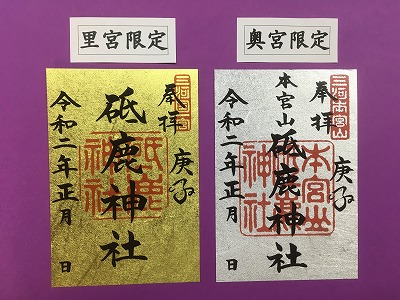 里宮限定
奥宮限定
三河一宮
奉拝
庚子
砥鹿神社
砥鹿神社
令和二年正月 日
三河本宮山
奉拝
庚子
本宮山
砥鹿神社
本宮山
神社
令和二年正月 日